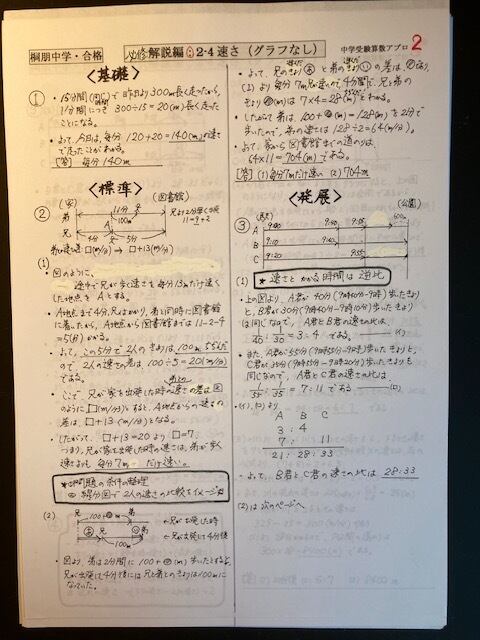 桐朋中学・合格
必修解説編 2-4 速さ（グラフなし）
中学受験算数アプロ 2
〈基礎〉
① ・15分間(同じ時間)で昨日より300m長く走ったから、
1分間につき 300÷15=20(m)長く走った
ことになる。
・よって、今日は、毎分 120+20=140(m)の速さ
で走ったことがわかる。
[答] 毎分140m
〈標準〉
②
(家) (図書館)
11分
弟
兄
A
4分 5分
兄は2分早く到着
11-9=2
弟の速さ □(m/分) → □+13(m/分)
(1)
・図のように、
途中で兄が歩く速さを毎分13mだけ速く
した地点を Aとする。
・A地点まで4分、兄はかかり、弟と同時に図書館
に着いたから、A地点から図書館までは 11-2-4
=5(分)かかる。
・よって、この5分で2人のきょりは、100m
ので 2人の速さの差は 100÷5=20(m/分)
である。
・ここで 兄が家を出発した時の速さの差は図
のように □(m/分)とすると、A地点からの速さの
差は、□+13(m/分)となる。
・したがって、□+13=20より □=7
つまり、兄が家を出発した時の速さは、弟が歩く
速さよりも 毎分7m だけ速い。
2人の速さの比較をイメージ
(2)
兄 100+ 弟
兄が出発した時
100m
兄が出発して4分後
・図より、弟は2分間に 100+ (m)歩いたとすると、
兄が出発して4分後には兄と弟とのきょりは100mに
なっていた。
・よって、兄のきょり と弟のきょり の差は
(2)より 毎分7m 4分間で、兄と弟の
きょり は 7×4=28(m)とわかる。
・したがって 弟は 100+28=128(m)を2分で
歩いたので、弟の速さは 128÷2=64(m/分)。
・よって、家から図書館までの道のりは、
64×11=704(m)である。
[答] (1)毎分7mだけ速い (2) 704m
〈発展〉
③
(公園)
A 9:00 9:40 9:55
600m
B 9:10 9:40
C 9:20 9:55
(1)
★ 速さとかかる時間は逆比
・上の図より、A君が40分(9時40分-9時)歩いたきょり
と、B君が30分(9時40分-9時10分)歩いたきょり
は同じなので、A君とB君の速さの比は、
1/40 : 1/30 = 3:4 ……(イ)
・また、A君が55分(9時55分-9時)歩いたきょりと、
C君が35分(9時55分-9時20分)歩いたきょりも
同じなので、A君とC君の速さの比は
1/55 : 1/35 = 7:11 である ……(ロ)
・(イ)、(ロ)より
A B C
3 : 4
7 : 11
21 : 28 : 33
・よって、B君とC君の速さの比は 28:33
(2)は次のページへ